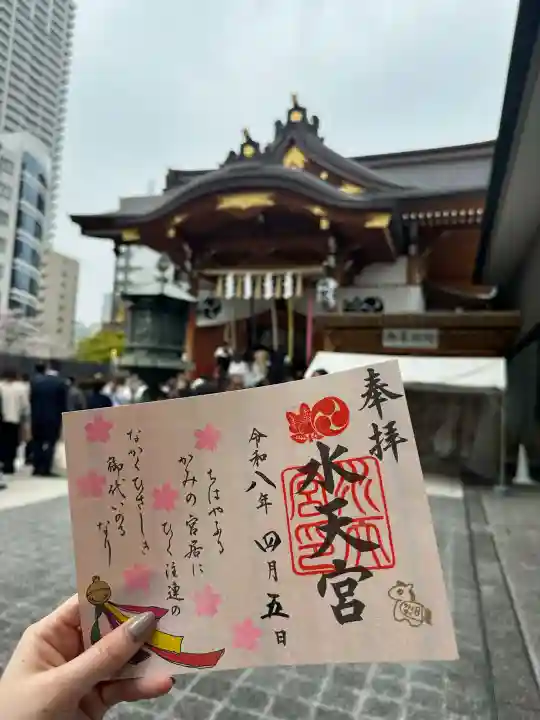 奉拝
水天宮
令和八年四月五日
ちはやふる
かみの宮居に
ひく注連の
なかくひさしき
御代いのる
なり